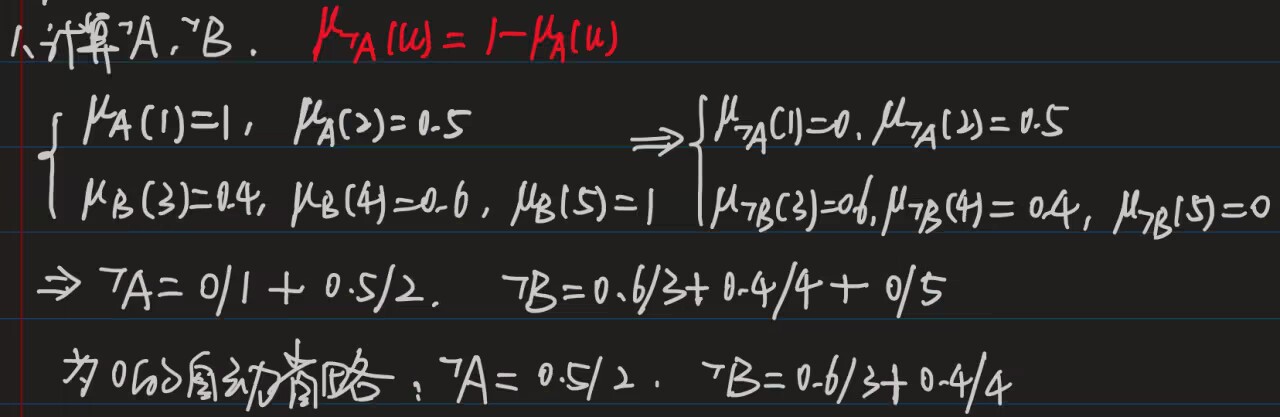 1、计算¬A,¬B. μ¬A(u)=1-μA(u)
{ μA(1)=1, μA(2)=0.5 ⇒ { μ¬A(1)=0, μ¬A(2)=0.5
μB(3)=0.4, μB(4)=0.6, μB(5)=1 μ¬B(3)=0.6, μ¬B(4)=0.4, μ¬B(5)=0
⇒ ¬A=0/1+0.5/2. ¬B=0.6/3+0.4/4+0/5
为0的自动省略:¬A=0.5/2. ¬B=0.6/3+0.4/4